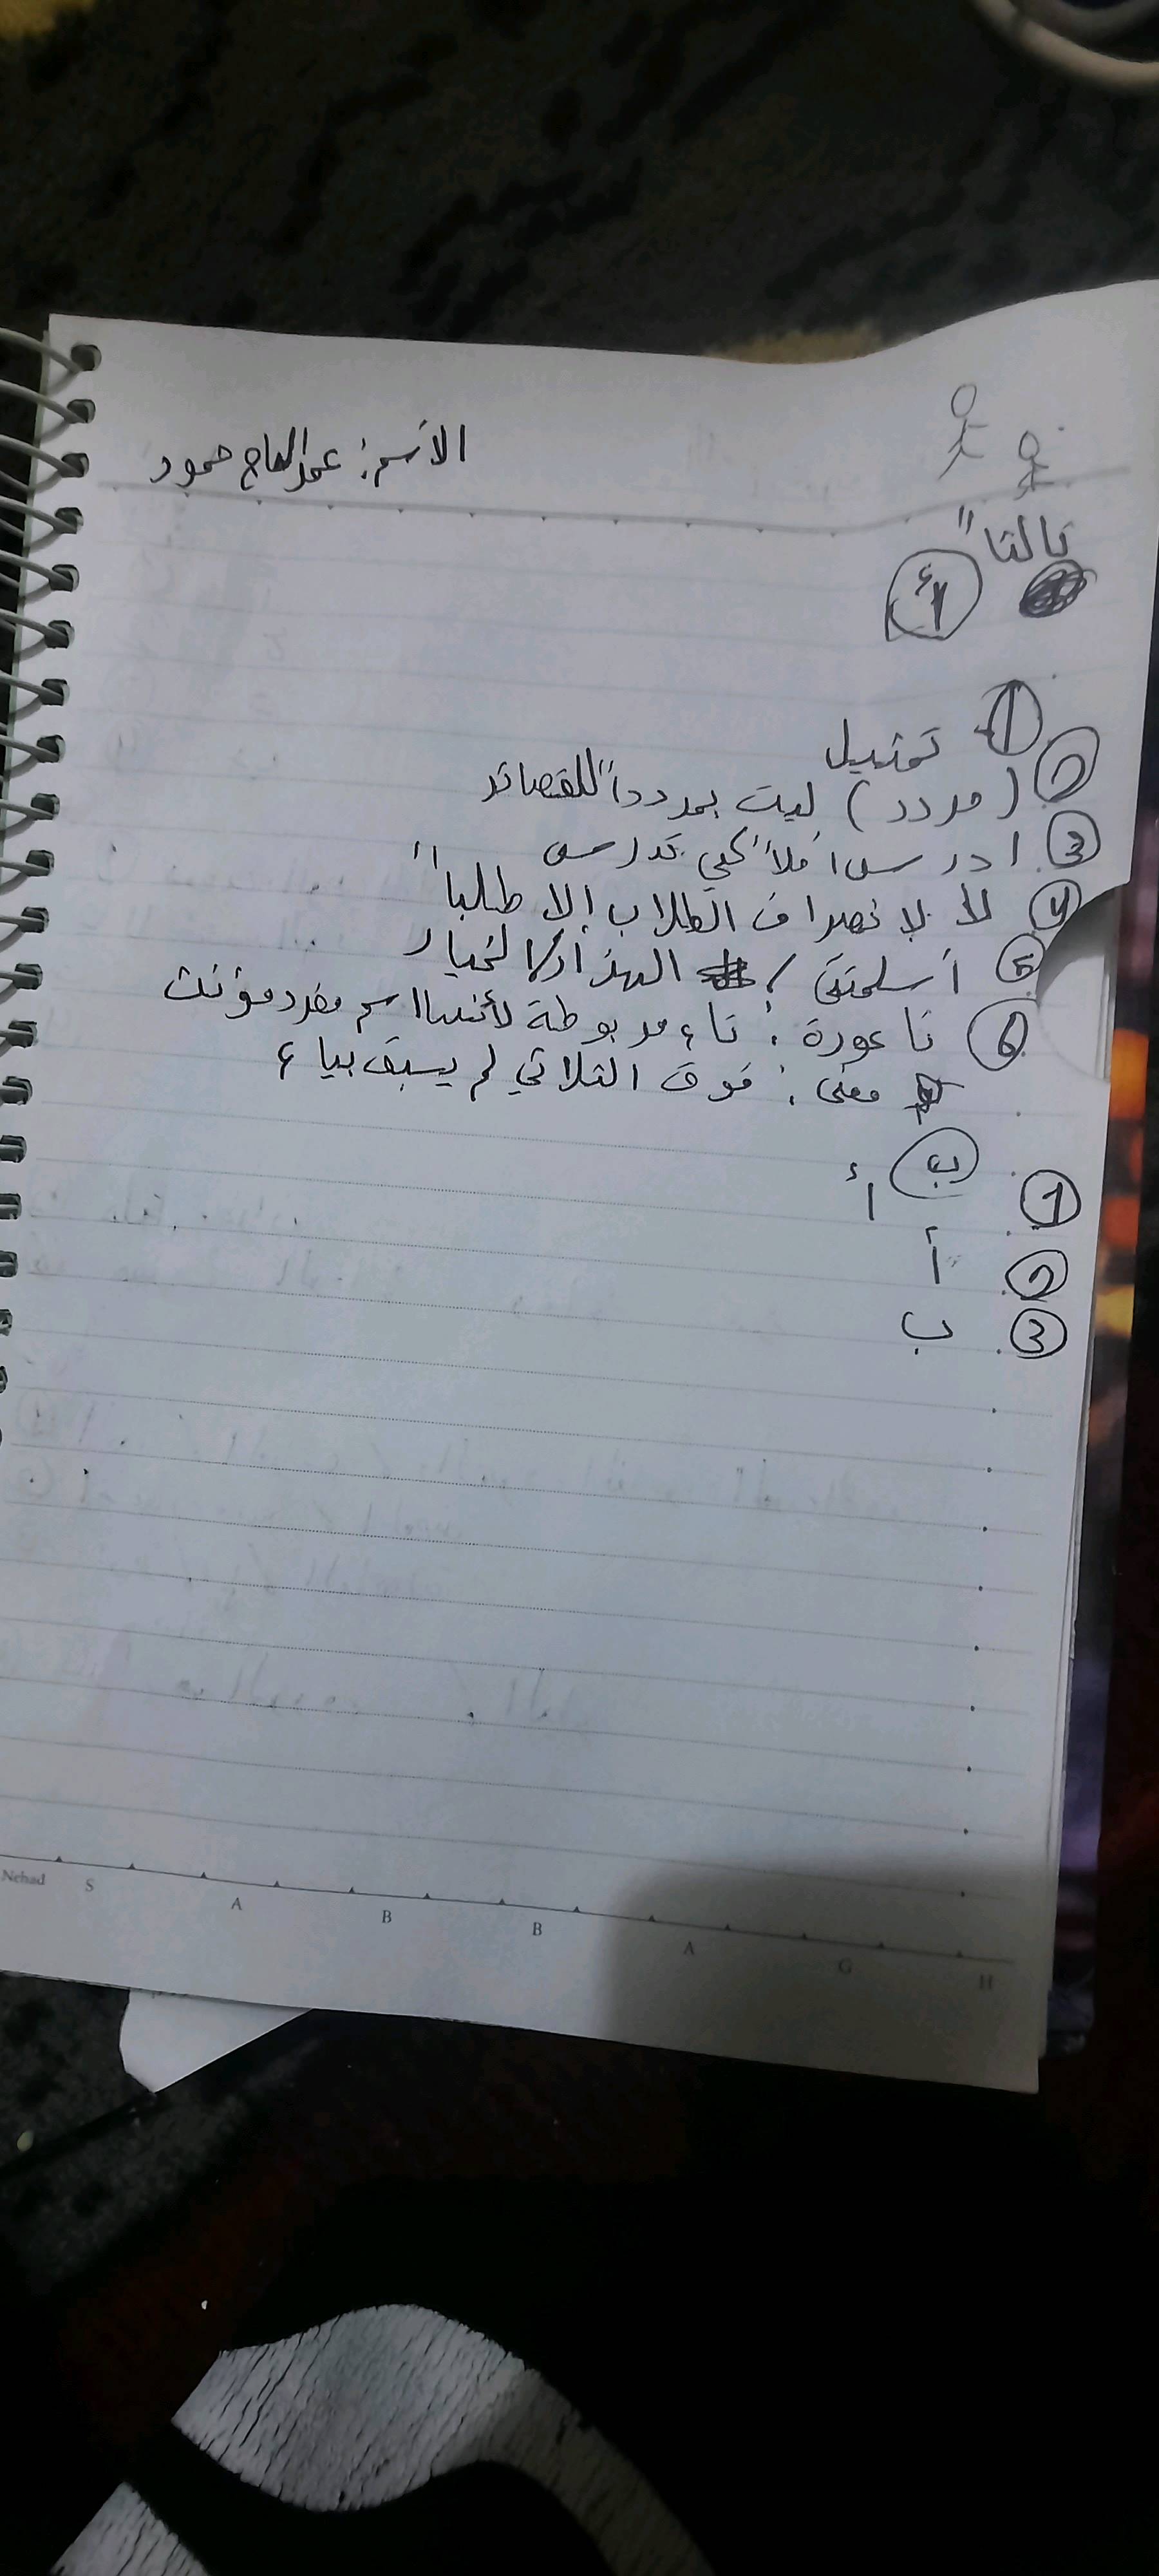 الأسم: عمر الحاج حمود
ثالثا"
أ
1 تمثيل
2 (مردد) ليت بمردداً للقصائد
3 ادرس املاً كي تدرس
4 لا نصراف الطلاب إلا طالباً
5 أسلمتني /
6 ناعورة: تاء مربوطة لأنها اسم مفرد مؤنث
معنى: فوق الثلاثي لم يسبق بياء
ب
1 أ
2 أ
3 ب
Nehad S A B B A G H